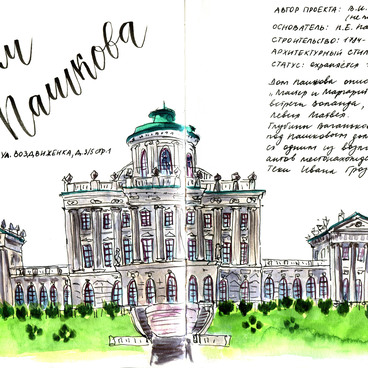 ом
Пашкова
ул. Воздвиженка, д. 3/5 стр. 1
Автор проекта: В.И.
Основатель: П.Е. Па
Строительство: 1784-
Архитектурный стил
Статус: охраняется
Дом Пашкова опис
"Мастер и Маргарит
встреча Воланда,
Левия Матвея.
Глубина Ваганьков
под Пашковым дом
ся одним из вариа
антов местонахожде
теки Ивана Гроз